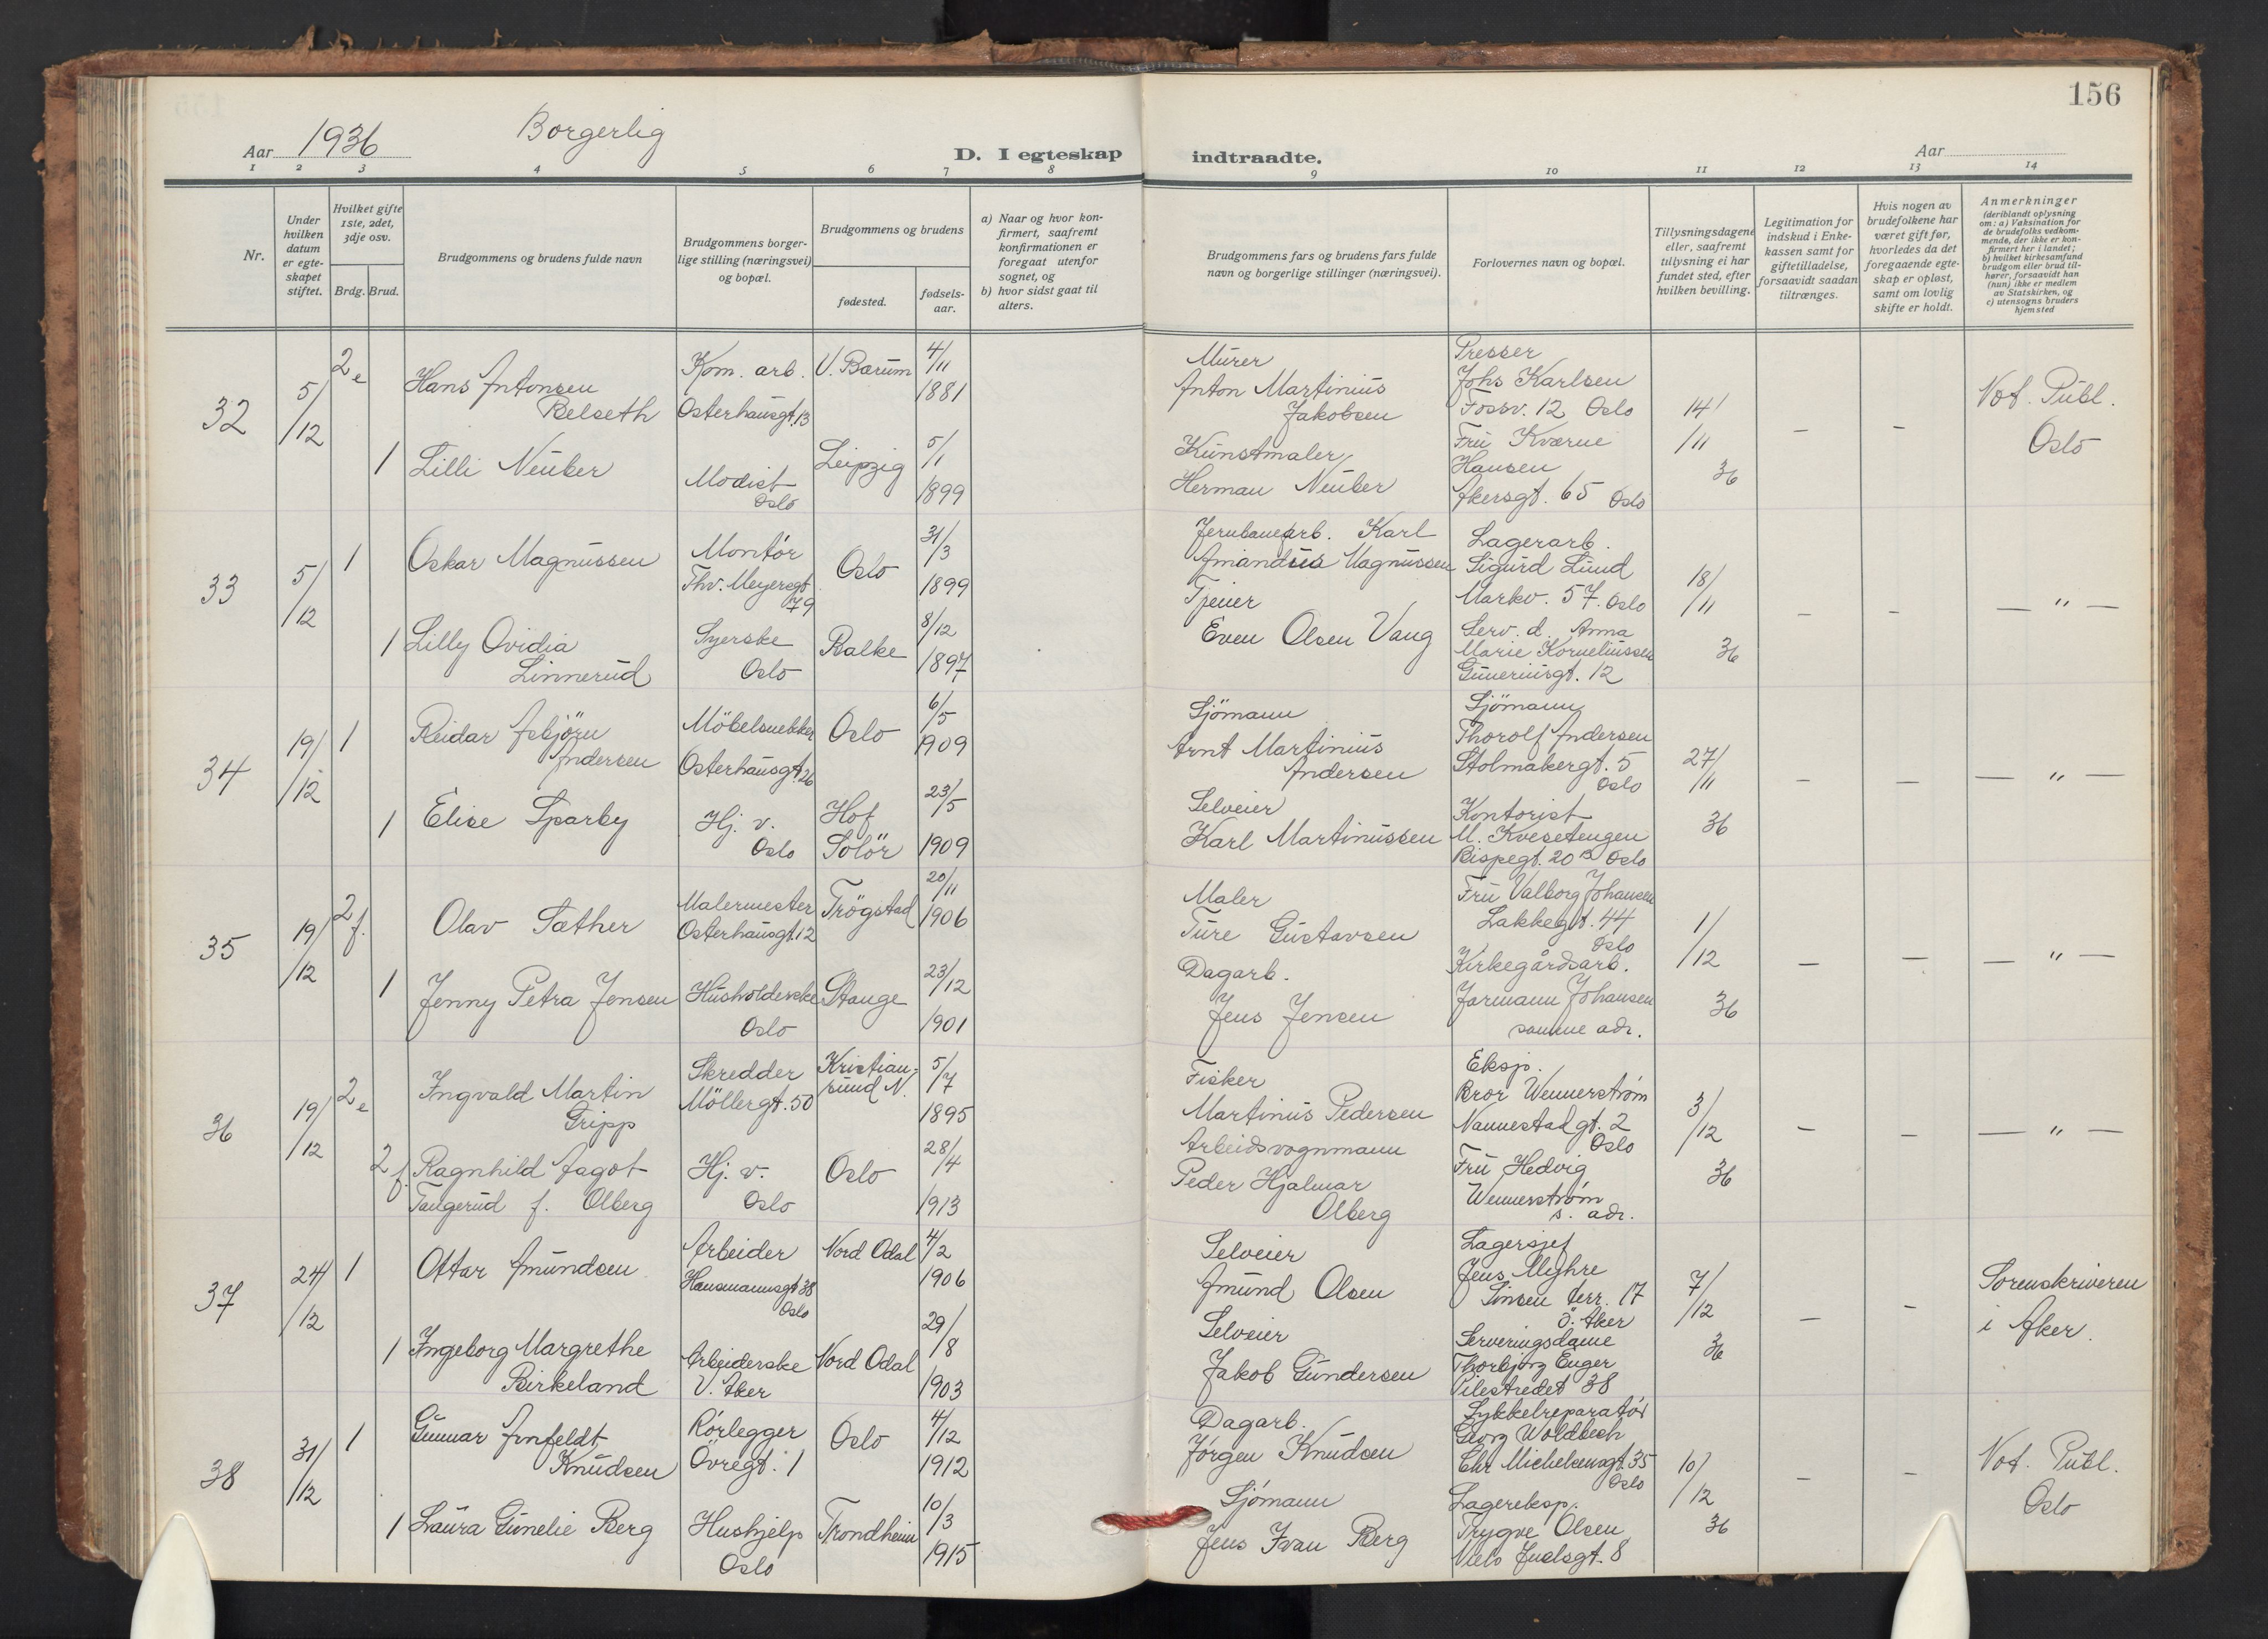 156
Aar 1936
Borgerlig
D. I egteskap indtraadte.
Aar
1 2 3 4 5 6 7 8 9 10 11 12 13 14
Nr.
Under
hvilken
datum
er egte-
skapet
stiftet.
Hvilket gifte
1ste, 2det,
3dje osv.
Brdg. Brud.
Brudgommens og brudens fulde navn
Brudgommens borger-
lige stilling (næringsvei)
og bopæl.
Brudgommens og brudens
fødested.
fødsels-
aar.
a) Naar og hvor kon-
firmert, saafremt
konfirmationen er
foregaat utenfor
sognet, og
b) hvor sidst gaat til
alters.
Brudgommens fars og brudens fars fulde
navn og borgerlige stillinger (næringsvei).
Forlovernes navn og bopæl.
Tillysningsdagene
eller, saafremt
tillysning ei har
fundet sted, efter
hvilken bevilling.
Legitimation for
indskud i Enke-
kassen samt for
giftetilladelse,
forsaavidt saadan
tiltrænges.
Hvis nogen av
brudefolkene har
været gift før,
hvorledes da det
foregaaende egte-
skap er opløst,
samt om lovlig
skifte er holdt.
Anmerkninger
(deriblandt oplysning
om: a) Vaksination for
de brudefolks vedkom-
mende, der ikke er kon-
firmert her i landet;
b) hvilket kirkesamfund
brudgom eller brud til-
hører, forsaavidt han
(hun) ikke er medlem
av Statskirken, og
c) utensogns bruders
hjemsted
32
5/12
2e
Hans Antonsen
Belseth
Kom. arb.
Osterhausgt. 13
V. Bærum
4/11
1881
Murer
Anton Martinius
Jakobsen
Presser
Johs Karlsen
Fossv. 12 Oslo
14/11
36
–
–
Not. Publ.
Oslo
1
Lilli Neuber
Modist
Oslo
Leipzig
5/1
1899
Kunstmaler
Herman Neuber
Fru Kværne
Hansen
Akersgt. 65 Oslo
33
5/12
1
Oskar Magnussen
Montör
Thv. Meyersgt
79
Oslo
31/3
1899
Jernbanearb. Karl
Amandus Magnussen
Lagerarb.
Sigurd Lund
Markv. 57. Oslo
18/11
36
–
–
— " —
1
Lilly Ovidia
Linnerud
Syerske
Oslo
Balke
8/12
1897
Tjener
Even Olsen Vang
Serv. d. Anna
Marie Korneliussen
Gunerusgt. 12
34
19/12
1
Reidar Asbjörn
Andersen
Möbelsnekker
Osterhausgt. 26
Oslo
6/5
1909
Sjömann
Arnt Martinius
Andersen
Sjömann
Thorolf Andersen
Stolmakergt. 5
Oslo
27/11
36
–
–
— " —
1
Elise Sparby
Hj. v.
Oslo
Hof
Solör
23/5
1909
Selveier
Karl Martinussen
Kontorist
M. Kvesetengen
Bispegt. 20 B Oslo
35
19/12
2f.
Olav Sæther
Malermester
Osterhausgt. 12
Trögstad
20/11
1906
Maler
Ture Gustavsen
Fru Valborg Johansen
Lakkegt. 44
Oslo
1/12
36
–
–
— " —
1
Jenny Petra Jensen
Husholderske
Oslo
Stange
23/12
1901
Dagarb.
Jens Jensen
Kirkegårdsarb.
Jarmann Johansen
samme adr.
36
19/12
2e
Ingvald Martin
Gripp
Skredder
Möllergt. 50
Kristian-
sund N.
5/7
1895
Fisker
Martinus Pedersen
Eksp.
Bror Wennerstrøm
Nannestadgt. 2
Oslo
3/12
36
–
–
— " —
2f.
Ragnhild Aagot
Tangerud f. Olberg
Hj. v.
Oslo
Oslo
28/4
1913
Arbeidsvognmann
Peder Hjalmar
Olberg
Fru Hedvig
Wennerstrøm
s. adr.
37
24/12
1
Ottar Amundsen
Arbeider
Hausmannsgt 38
Oslo
Nord Odal
4/2
1906
Selveier
Amund Olsen
Lagersjef
Jens Myhre
Sinsen terr. 17
Ö. Aker
7/12
36
–
–
Sorenskriveren
i Aker.
1
Ingeborg Margrethe
Birkeland
Arbeiderske
V. Aker
Nord Odal
29/8
1903
Selveier
Jakob Gundersen
Serveringsdame
Thorbjørg Enger
Pilestredet 38
38
31/12
1
Gunnar Arnfeldt
Knudsen
Rörlegger
Övregt. 1
Oslo
4/12
1912
Dagarb.
Jörgen Knudsen
Sykkelreparatör
Georg Woldbech
Chr Michelsensgt. 35
Oslo
10/12
36
–
–
Not. Publ.
Oslo
1
Laura Gunelie Berg
Hushjelp
Oslo
Trondheim
10/3
1915
Sjömann
Jens Ivan Berg
Lagereksp.
Trygve Olsen
Niels Juelsgt. 8